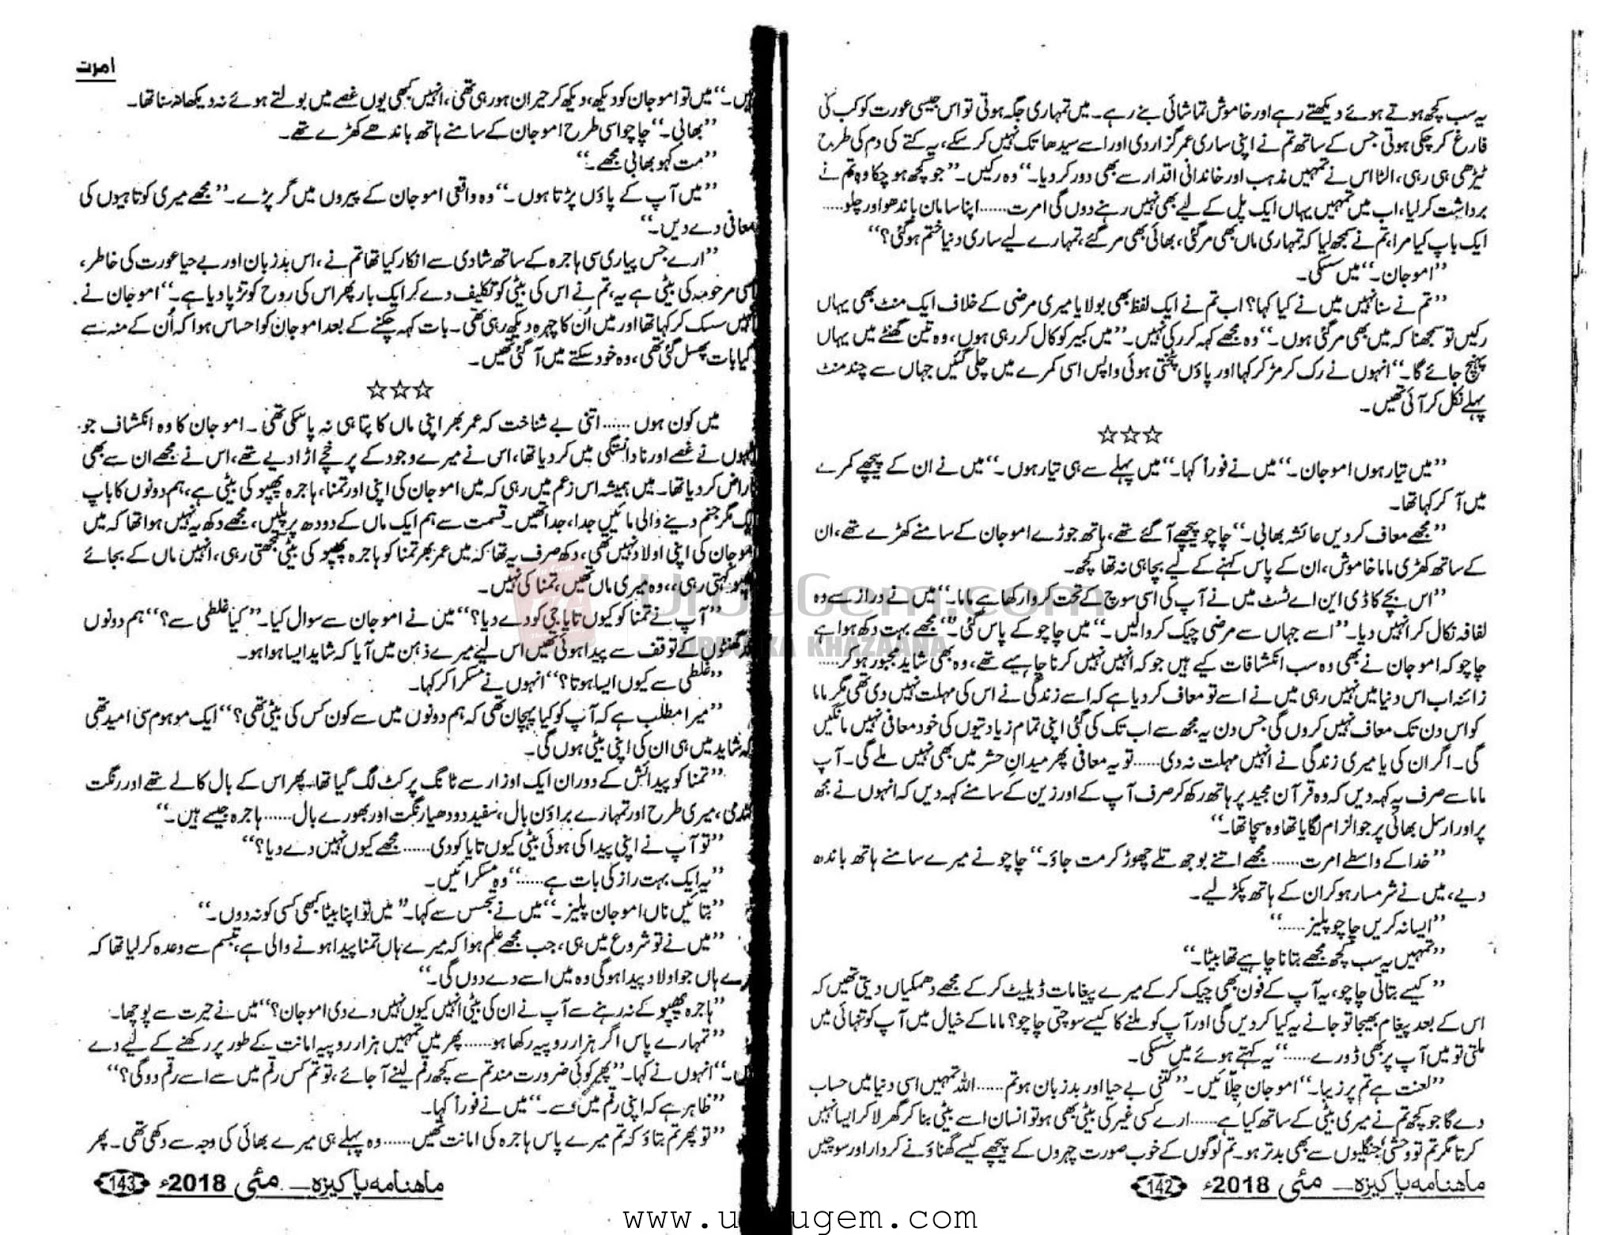 یہ سب کچھ ہوتے ہوئے دیکھتے رہے اور خاموش تماشائی بنے رہے۔ میں تمہاری جگہ ہوتی تو اس جیسی عورت کو کب کی
فارغ کر چکی ہوتی جس کے ساتھ تم نے اپنی ساری عمر گزار دی اور اسے سیدھا تک نہیں کر سکے، یہ کتے کی دم کی طرح
ٹیڑھی ہی رہی، الٹا اس نے تمہیں مذہب اور خاندانی اقدار سے بھی دور کر دیا۔‘‘ وہ رکیں۔ ’’جو کچھ ہو چکا وہ تم نے
برداشت کر لیا، اب میں تمہیں یہاں ایک پل کے لیے بھی نہیں رہنے دوں گی امرت...... اپنا سامان باندھو اور چلو......
ایک باپ کیا مرا، تم نے سمجھ لیا کہ تمہاری ماں بھی مر گئی، بھائی بھی مر گئے، تمہارے لیے ساری دنیا ختم ہو گئی؟‘‘
’’اموجان۔‘‘ میں سسکی۔
’’تم نے سنا نہیں میں نے کیا کہا؟ اب تم نے ایک لفظ بھی بولا یا میری مرضی کے خلاف ایک منٹ بھی یہاں
رکیں تو سمجھنا کہ میں بھی مر گئی ہوں۔‘‘ وہ مجھے کہہ کر رکی نہیں۔ ’’میں کبیر کو کال کر رہی ہوں، وہ تین گھنٹے میں یہاں
پہنچ جائے گا۔‘‘ انہوں نے رک کر مڑ کر کہا اور پاؤں پٹختی ہوئی واپس اسی کمرے میں چلی گئیں جہاں سے چند منٹ
پہلے نکل کر آئی تھیں۔
☆☆☆
’’میں تیار ہوں اموجان۔‘‘ میں نے فوراً کہا۔ ’’میں پہلے سے ہی تیار ہوں۔‘‘ میں نے ان کے پیچھے کمرے
میں آ کر کہا تھا۔
’’مجھے معاف کر دیں عائشہ بھابی۔‘‘ چاچو پیچھے آ گئے تھے، ہاتھ جوڑے اموجان کے سامنے کھڑے تھے، ان
کے ساتھ کھڑی ماما خاموش، ان کے پاس کہنے کے لیے بچا ہی نہ تھا کچھ۔
’’اس بچے کا ڈی این اے ٹسٹ میں نے آپ کی اسی سوچ کے تحت کروا رکھا ہے ماما۔‘‘ میں نے دراز سے وہ
لفافہ نکال کر انہیں دیا۔ ’’اسے جہاں سے مرضی چیک کروا لیں۔‘‘ میں چاچو کے پاس گئی۔ ’’مجھے بہت دکھ ہوا ہے
چاچو کہ اموجان نے بھی وہ سب انکشافات کیے ہیں جو کہ انہیں نہیں کرنا چاہیے تھے، وہ بھی شاید مجبور ہو کر......
زائنہ اب اس دنیا میں نہیں رہی میں نے اسے تو معاف کر دیا ہے کہ اسے زندگی نے اس کی مہلت نہیں دی تھی مگر ماما
کو اس دن تک معاف نہیں کروں گی جس دن یہ مجھ سے اب تک کی گئی اپنی تمام زیادتیوں کی خود معافی نہیں مانگیں
گی۔ اگر ان کی یا میری زندگی نے انہیں مہلت نہ دی...... تو یہ معافی پھر میدانِ حشر میں بھی نہیں ملے گی۔ آپ
ماما سے صرف یہ کہہ دیں کہ وہ قرآن مجید پر ہاتھ رکھ کر صرف آپ کے اور زین کے سامنے کہہ دیں کہ انہوں نے مجھ
پر اور ارسل بھائی پر جو الزام لگایا تھا وہ سچا تھا۔‘‘
’’خدا کے واسطے امرت...... مجھے اتنے بوجھ تلے چھوڑ کر مت جاؤ۔‘‘ چاچو نے میرے سامنے ہاتھ باندھ
دیے، میں نے شرمسار ہو کر ان کے ہاتھ پکڑ لیے۔
’’ایسا نہ کریں چاچو پلیز......‘‘
’’تمہیں یہ سب کچھ مجھے بتانا چاہیے تھا بیٹا۔‘‘
’’کیسے بتاتی چاچو، یہ آپ کے فون بھی چیک کر کے میرے پیغامات ڈیلیٹ کر کے مجھے دھمکیاں دیتی تھیں کہ
اس کے بعد پیغام بھیجا تو جانے یہ کیا کر دیں گی اور آپ کو ملنے کا کیسے سوچتی چاچو؟ ماما کے خیال میں آپ کو تنہائی میں
ملتی تو میں آپ پر بھی ڈورے......‘‘ یہ کہتے ہوئے میں سسکی۔
’’لعنت ہے تم پر زیبا۔‘‘ اموجان چلّائیں۔ ’’کتنی بے حیا اور بد زبان ہو تم...... اللہ تمہیں اسی دنیا میں حساب
دے گا جو کچھ تم نے میری بیٹی کے ساتھ کیا ہے...... ارے کسی غیر کی بیٹی بھی ہو تو انسان اسے بیٹی بنا کر گھر لا کر ایسا نہیں
کرتا مگر تم تو وحشی جنگلیوں سے بھی بدتر ہو۔ تم لوگوں کے خوب صورت چہروں کے پیچھے کیسے گھناؤنے کردار اور سوچیں
ماہنامہ پاکیزہ۔ مئی 2018ء 142
امرت
ہیں۔‘‘ میں تو اموجان کو دیکھ، دیکھ کر حیران ہو رہی تھی، انہیں کبھی یوں غصے میں بولتے ہوئے نہ دیکھا نہ سنا تھا۔
’’بھابی۔‘‘ چاچو اسی طرح اموجان کے سامنے ہاتھ باندھے کھڑے تھے۔
’’مت کہو بھابی مجھے۔‘‘
’’میں آپ کے پاؤں پڑتا ہوں۔‘‘ وہ واقعی اموجان کے پیروں میں گر پڑے۔ ’’مجھے میری کوتاہیوں کی
معافی دے دیں۔‘‘
’’ارے جس پیاری سی ہاجرہ کے ساتھ شادی سے انکار کیا تھا تم نے، اس بدزبان اور بے حیا عورت کی خاطر،
اسی مرحومہ کی بیٹی ہے یہ، تم نے اس کی بیٹی کو تکلیف دے کر ایک بار پھر اس کی روح کو تڑپا دیا ہے۔‘‘ اموجان نے
انہیں سسک کر کہا تھا اور میں اُن کا چہرہ دیکھ رہی تھی۔ بات کہہ چکنے کے بعد اموجان کو احساس ہوا کہ اُن کے منہ سے
کیا بات پھسل گئی تھی، وہ خود سکتے میں آ گئی تھیں۔
☆☆☆
میں کون ہوں...... اتنی بے شناخت کہ عمر بھر اپنی ماں کا پتا ہی نہ پا سکی تھی۔ اموجان کا وہ انکشاف جو
انہوں نے غصے اور نادانستگی میں کر دیا تھا، اس نے میرے وجود کے پرخچے اڑا دیے تھے، اس نے مجھے ان سے بھی
ناراض کر دیا تھا۔ میں ہمیشہ اس زعم میں رہی کہ میں اموجان کی اپنی اور تمنا، ہاجرہ پھپو کی بیٹی ہے، ہم دونوں کا باپ
ایک مگر جنم دینے والی مائیں جدا، جدا تھیں۔ قسمت سے ہم ایک ماں کے دودھ پر پلیں، مجھے دکھ یہ نہیں ہوا تھا کہ میں
اموجان کی اپنی اولاد نہیں تھی، دکھ صرف یہ تھا کہ میں عمر بھر تمنا کو ہاجرہ پھپو کی بیٹی سمجھتی رہی، انہیں ماں کے بجائے
پھپو کہتی رہی،، وہ میری ماں تھیں، تمنا کی نہیں۔
’’آپ نے تمنا کو کیوں تایا جی کو دے دیا؟‘‘ میں نے اموجان سے سوال کیا۔ ’’کیا غلطی سے؟‘‘ ہم دونوں
گھنٹوں کے توقف سے پیدا ہوئی تھیں اس لیے میرے ذہن میں آیا کہ شاید ایسا ہوا ہو۔
’’غلطی سے کیوں ایسا ہوتا؟‘‘ انہوں نے مسکرا کر کہا۔
’’میرا مطلب ہے کہ آپ کو کیا پہچان تھی کہ ہم دونوں میں سے کون کس کی بیٹی تھی؟‘‘ ایک موہوم سی امید تھی
کہ شاید میں ہی ان کی اپنی بیٹی ہوں گی۔
’’تمنا کو پیدائش کے دوران ایک اوزار سے ٹانگ پر کٹ لگ گیا تھا۔ پھر اس کے بال کالے تھے اور رنگت
گندمی، میری طرح اور تمہارے براؤن بال، سفید دودھیا رنگت اور بھورے بال...... ہاجرہ جیسے ہیں۔‘‘
’’تو آپ نے اپنی پیدا کی ہوئی بیٹی کیوں تایا کو دی...... مجھے کیوں نہیں دے دیا؟‘‘
’’یہ ایک بہت راز کی بات ہے......‘‘ وہ مسکرائیں۔
’’بتائیں ناں اموجان پلیز۔‘‘ میں نے تجسس سے کہا۔ ’’میں تو اپنا بیٹا بھی کسی کو نہ دوں۔‘‘
’’میں نے تو شروع میں ہی، جب مجھے علم ہوا کہ میرے ہاں تمنا پیدا ہونے والی ہے، تبسم سے وعدہ کر لیا تھا کہ
میرے ہاں جو اولاد پیدا ہو گی وہ میں اسے دے دوں گی۔‘‘
’’ہاجرہ پھپو کے نہ رہنے سے آپ نے ان کی بیٹی انہیں کیوں نہیں دے دی اموجان؟‘‘ میں نے حیرت سے پوچھا۔
’’تمہارے پاس اگر ہزار روپیہ رکھا ہو...... پھر میں تمہیں ہزار روپیہ امانت کے طور پر رکھنے کے لیے دے
دوں۔‘‘ انہوں نے کہا۔ ’’پھر کوئی ضرورت مند تم سے کچھ رقم لینے آ جائے، تو تم کس رقم میں سے اسے رقم دو گی؟‘‘
’’ظاہر ہے کہ اپنی رقم میں سے۔‘‘ میں نے فوراً کہا۔
’’تو پھر تم بتاؤ کہ تم میرے پاس ہاجرہ کی امانت تھیں...... وہ پہلے ہی میرے بھائی کی وجہ سے دکھی تھی۔ پھر
ماہنامہ پاکیزہ۔ مئی 2018ء 143
UrduGem.com
URDU KA KHAZAANA